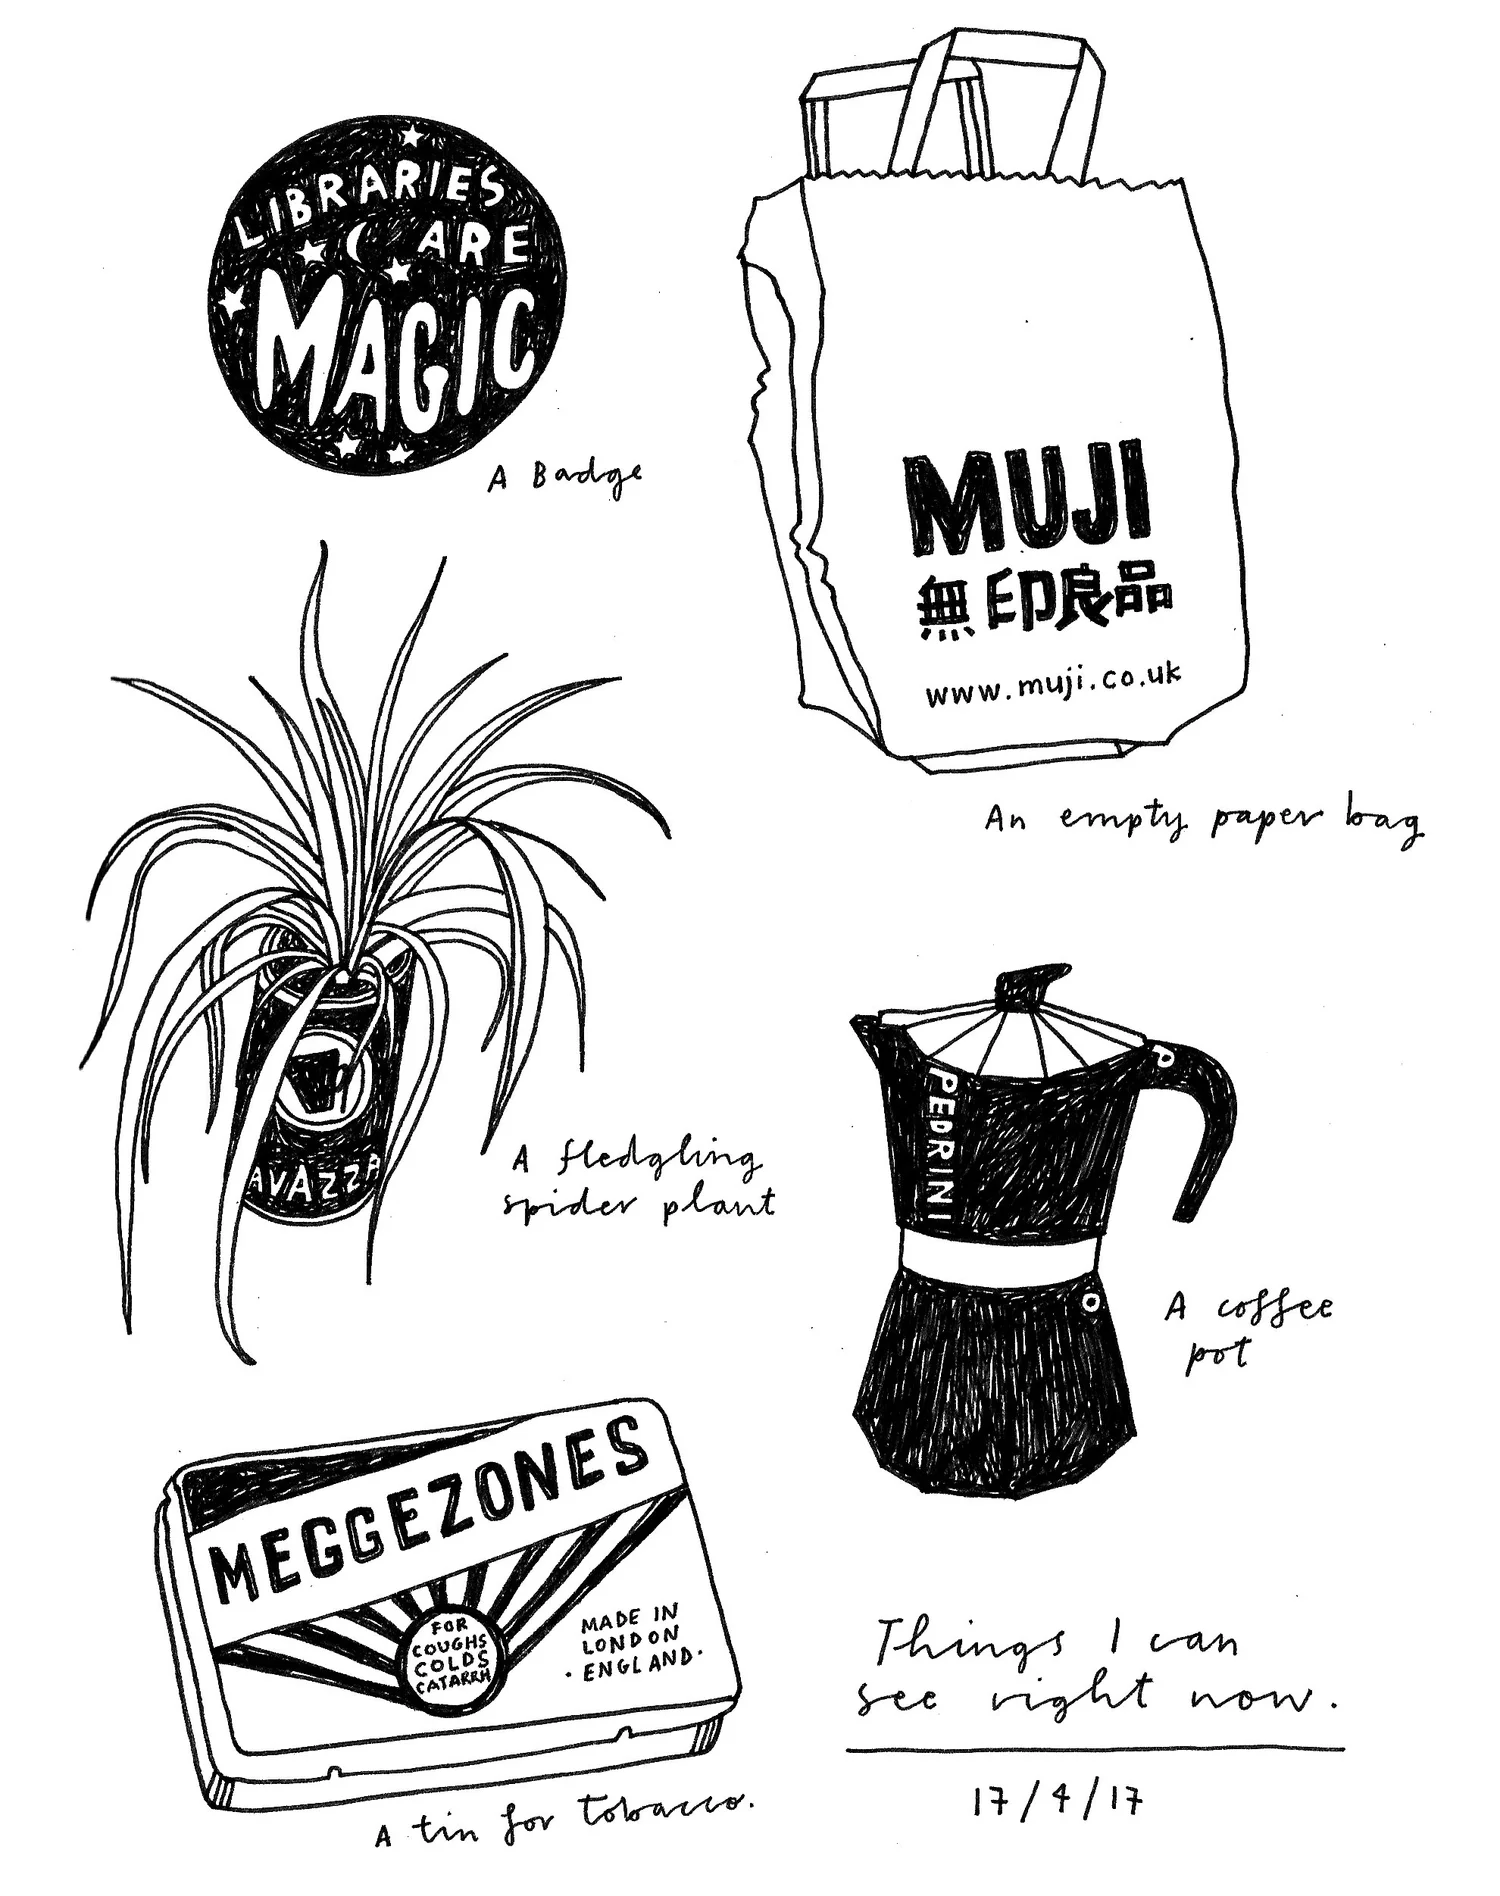 LIBRARIES
ARE
MAGIC
A Badge
MUJI
無印良品
www.muji.co.uk
An empty paper bag
AVAZZA
A fledgling
spider plant
P
PEDRINI
A coffee
pot
MEGGEZONES
FOR
COUGHS
COLDS
CATARRH
MADE IN
LONDON
· ENGLAND ·
A tin for tobacco.
Things I can
see right now.
17/4/17